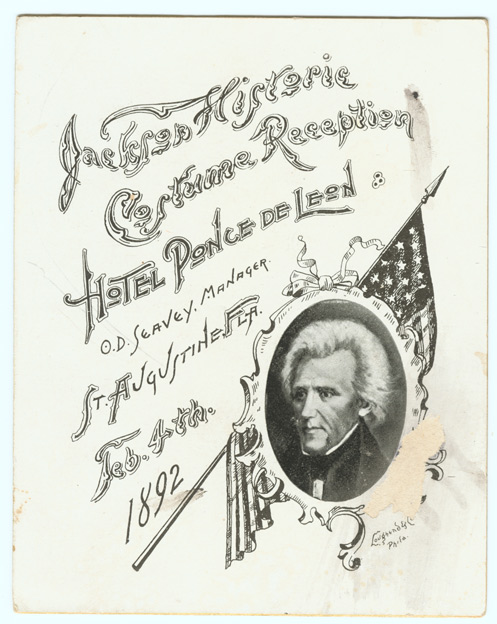 Jackson Historic
Costume Reception
Hotel Ponce de Leon
O.D. Seavey, Manager.
St. Augustine, Fla.
Feb. 4th.
1892
Phila.